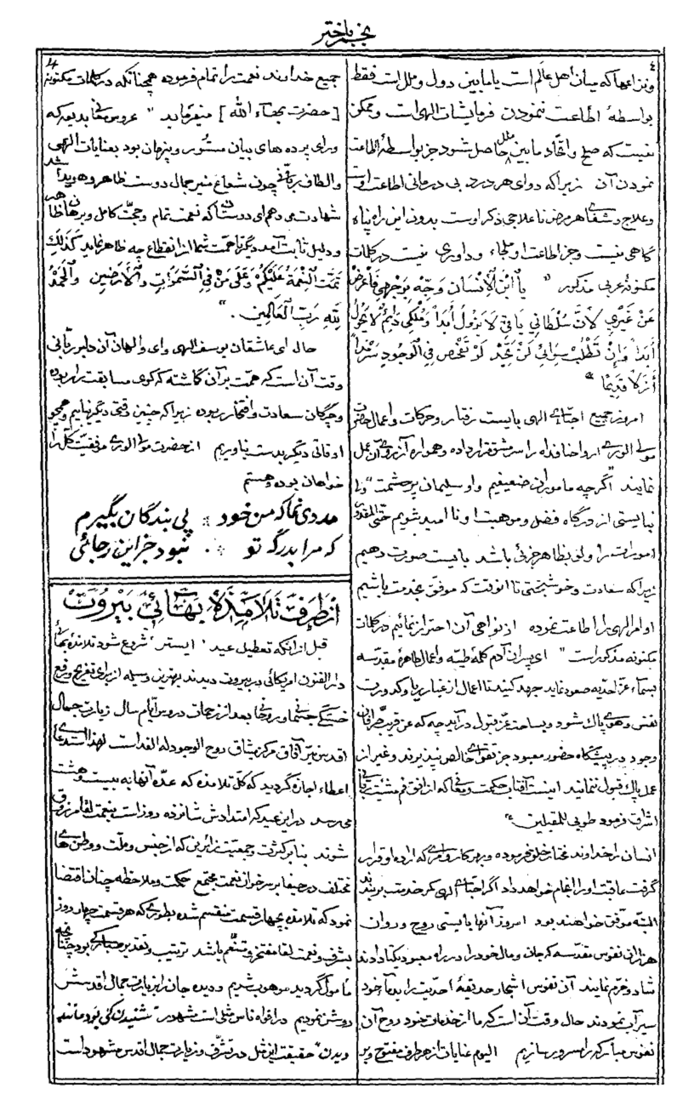 نجم باختر
٤
و نزاعها که میان اهل عالم است یا مابین دول و ملل است فقط
بواسطهٔ اطاعت ننمودن فرمایشات الهی است و ممکن
نیست که صلح و اتحاد مابین ملل حاصل شود جز بواسطهٔ اطاعت
نمودن آن زیرا که دوای هر درد بی درمانی اطاعت اوست
و علاج و شفای هر مرض ناعلاجی ذکر اوست بدون این راه پناه
گاهی نیست و جز اطاعت او ملجاء و داوری نیست در کلمات
مکنونهٔ عربی مذکور " یا ابْنَ الْاِنْسَانِ وَجِّهْ بِوَجْهِي فَاَعْرِضْ
عَنْ غَيْرِي لِاَنَّ سُلْطَانِي بَاقٍ لَا يَزُولُ اَبَداً وَ مُلْكِي دَائِمٌ لَا يَحُولُ
اَبَداً وَ اِنْ تَطْلُبْ سِوَائِي لَنْ تَجِدَ لَوْ تَفْحَصُ فِي الْوُجُودِ سَرْمَداً
اَزَلاً قَدِيماً "
امروز جمیع احبّای الهی بایست رفتار و حرکات و اعمال حضرت
مولی الوری ارواحنا فداه را سرمشق قرار داده و همواره آرزوی آن عمل
نمایند " اگرچه ما موران ضعیفیم و او سلیمان پر حشمت " ولی
نبایستی از درگاه فضل و موهبت او ناامید شویم حتّی المقدور
امورات را ولو بظاهر جزئی باشد بایست صورت دهیم
زیرا که سعادت و خوشبختی تا آنوقت که موفق بخدمت باشیم
اوامر الهی را اطاعت نموده از نواهی آن احتراز نمائیم در کلمات
مکنونه مذکور است " ای پسران آدم کلمهٔ طیّبه و اعمال طاهرهٔ مقدسه
بسماء عزّ احدیه صعود نماید جهد کنید تا اعمال از غبار ریا و کدورت
نفس و هوی پاک شود و بساحت عزّ قبول درآید چه که عنقریب صرّافان
وجود در پیشگاه حضور معبود جز تقوای خالص نپذیرند و غیر از
عمل پاک قبول ننمایند اینست آفتاب حکمت و معانی که از افق فم مشیّت ربّانی
اشراق فرمود طوبی للمقبلین "
انسان را خداوند مختار خلق فرموده و بهر کار و امری که اراده او قرار
گرفت عاقبت او را انجام خواهد داد اگر احبّای الهی کمر خدمت بربندند
البته موفق خواهند بود امروز آنها بایستی روح و روان
هزاران نفوس مقدسه که جان و مال خود را در راه معبود یکتا دادند
شاد و خرّم نمایند آن نفوس اشجار حدیقهٔ احدیّت را بدماء خود
سیراب نمودند حال وقت آن است که ما از خدمات خود روح آن
نفوس مبارکه را مسرور سازیم الیوم عنایات از هر طرف مفتوح و بر
جمیع خداوند نعمت را تمام فرموده همچنانکه در کلمات مکنونه
[حضرت بهآء الله] میفرماید " عروس معانی بدیعه که
ورای پرده های بیان مستور و پنهان بود بعنایات الهی
و الطاف ربّانی چون شعاع منیر جمال دوست ظاهر و هویدا شد
شهادت میدهم ای دوستان که نعمت تمام و حجّت کامل و برهان ظاهر
و دلیل ثابت آمد دیگر تا همّت شما از انقطاع چه ظاهر نماید کَذَلِكَ
تَمَّتِ النِّعْمَةُ عَلَيْكُمْ وَ عَلَى مَنْ فِي السَّمَوَاتِ وَ الْاَرَضِينَ وَ الْحَمْدُ
لِلَّهِ رَبِّ الْعَالَمِينَ . "
حال ای عاشقان یوسف الهی و ای والهان آن دلبر ربّانی
وقت آن است که همّت بر آن گماشته که گوی مسابقت را ربوده
و چوگان سعادت و افتخار ربوده زیرا که چنین وقتی دیگر نیابیم و همچو
اوقاتی دیگر بدست نیاوریم از حضرت مولی الوری موفقیت کل را
خواهان بوده و هستم
مددی نما که من خود ∴ پی بندگان بگیرم
که مرا بدرگه تو ∴ نبود جز این رجائی
از طرف تلامذهٔ بهائی بیروت
قبل از اینکه تعطیل عید " ایستر " شروع شود تلامذهٔ بهائی
دار الفنون امریکائی در بیروت دیدند بهترین وسیله از برای تفریح و رفع
خستگی جسمانی و روحانی بعد از زحمات دروس ایام سال زیارت جمال
اقدس نیّر آفاق مرکز میثاق روح الوجود له الفدا است لهذا استدعای
اعطاء اجازه گردید که کل تلامذه که عدّه آنها به بیست و هشت
می رسد در این عید که امتدادش شانزده روز است بنعمت لقا مرزوق
شوند بنا بر کثرت و جمعیت زائرین که از جنس و ملّت و وطن های
مختلف در حیفا بر سر خوان نعمت مجتمع حکمت و ملاحظه چنان اقتضا
نمود که تلامذه بچهار قسمت منقسم شده بطوری که هر قسمت چهار روز
بشرف و نعمت لقا مفتخر و متنعّم باشد ترتیب و تقدیر مبارکی بود چنانچه
مأمول گردید موهوب شدیم و دیده جان را بزیارت جمال اقدسش
روشن نمودیم در افواه ناس مثلی است مشهور " شنیدن کی بود مانند
دیدن " حقیقت این مثل در تشرّف و زیارت جمال اقدس مشهود است